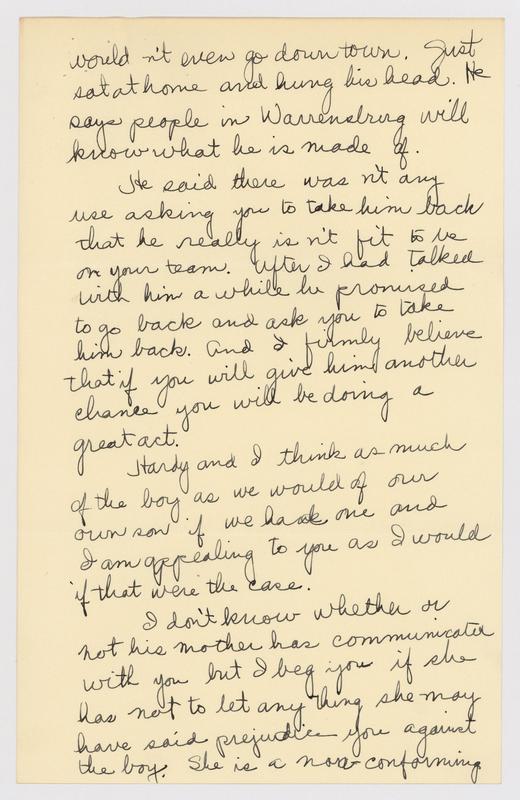 would n't even go down town. Just
sat at home and hung his head. He
says people in Warrensburg will
know what he is made of.
He said there was n't any
use asking you to take him back
that he really is n't fit to be
on your team. After I had talked
with him a while he promised
to go back and ask you to take
him back. And I firmly believe
that if you will give him another
chance you will be doing a
great act.
Hardy and I think as much
of the boy as we would of our
own son if we had one and
I am appealing to you as I would
if that were the case.
I don't know whether or
not his mother has communicated
with you but I beg you if she
has not to let any thing she may
have said prejudice you against
the boy. She is a non-conforming